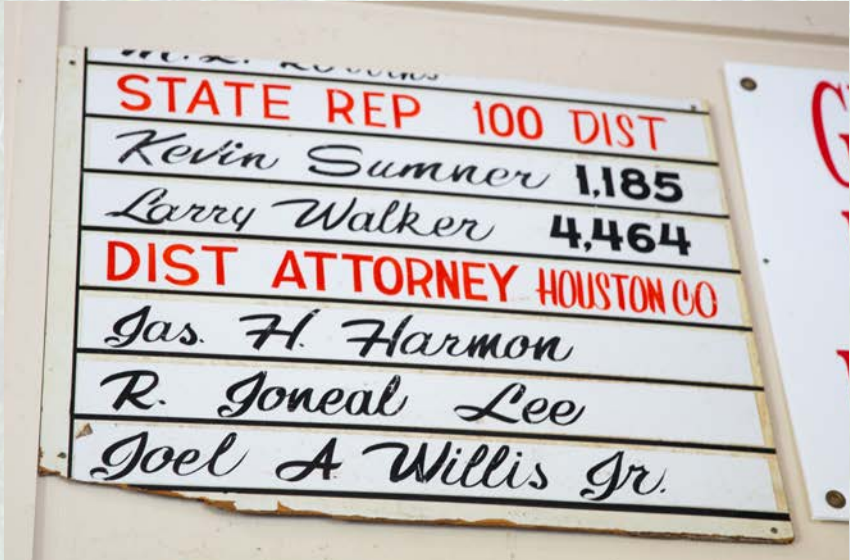 STATE REP 100 DIST
Kevin Sumner 1,185
Larry Walker 4,464
DIST ATTORNEY HOUSTON CO
Jas. H. Harmon
R. Joneal Lee
Joel A. Willis Jr.